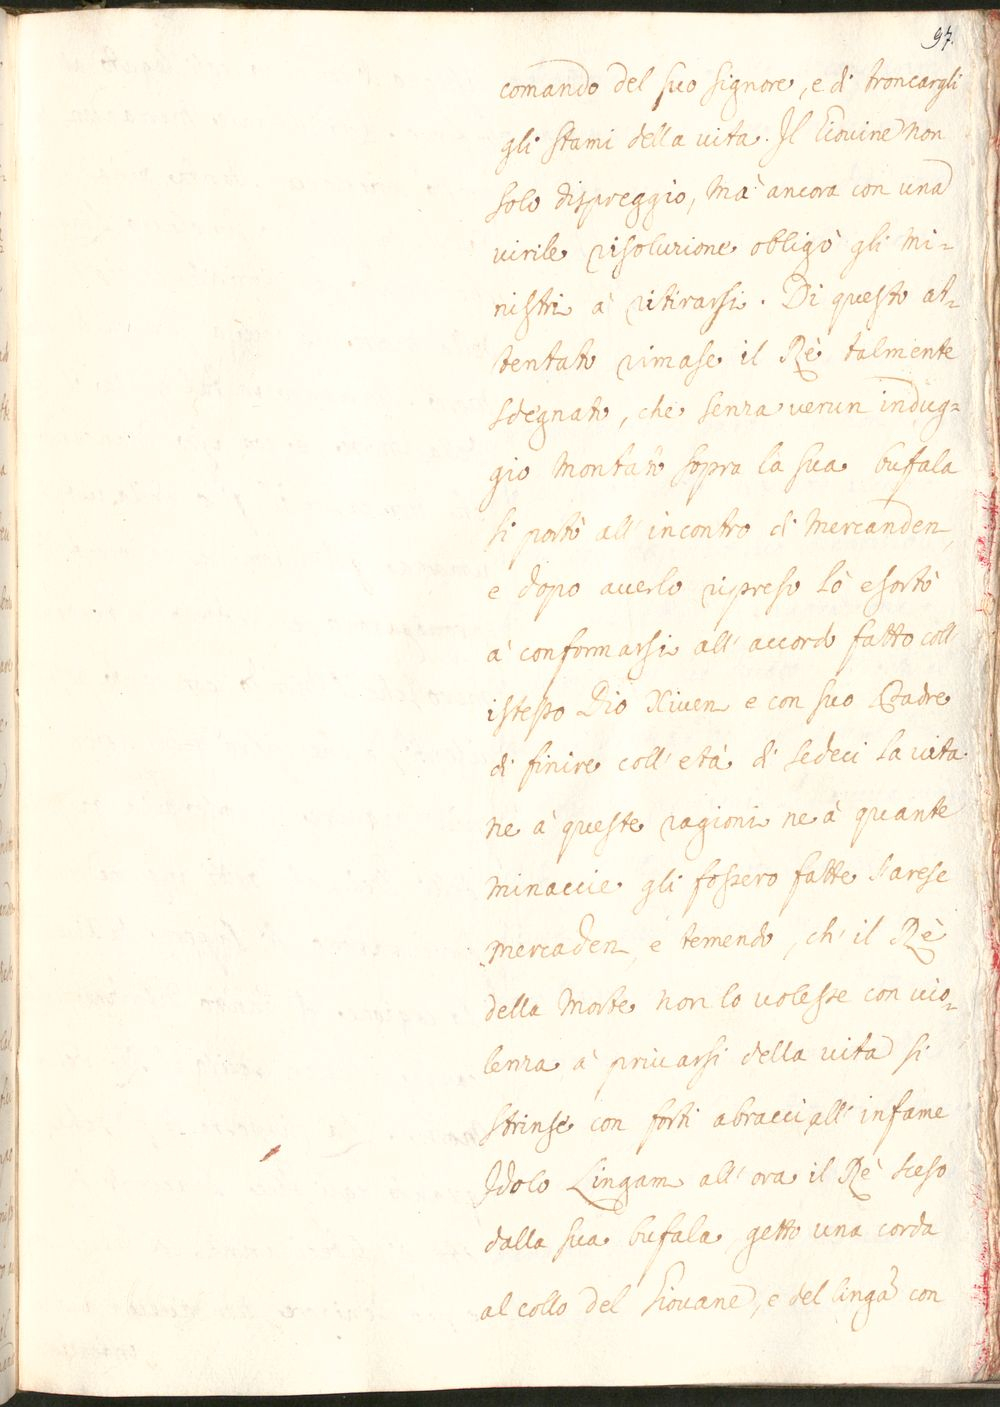 97.
comando del suo signore, e di troncargli
gli stami della vita. Il Giovine non
solo dispreggio, mà ancora con una
virile risoluzione obligò gli mi=
nistri à ritirarsi. Di questo at=
tentato rimase il Rè talmente
sdegnato, che senza verun indug=
gio montato sopra la sua bufala
si portò all' incontro di Mercanden,
e dopo averlo ripreso lò esortò
à conformarsi all' accordo fatto coll'
istesso Dio Xiven e con suo Padre
di finire coll' età di sedeci la vita.
ne à queste ragioni ne à quante
minaccie gli fossero fatte s'arese
Mercaden, e temendo, ch' il Rè
della Morte non lo volesse con vio=
lenza à privarsi della vita si
strinse con forti abracci all' infame
Idolo Lingam all' ora il Rè sceso
dalla sua bufala getto una corda
al collo del Giovane, e del lingã con